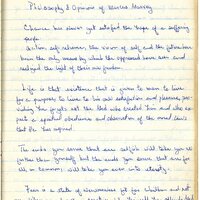 Philosophy & Opinions of Marcus Garvey
Chance has never yet satisfied the hope of a suffering
people.
Action, self-reliance, the vision of self and the future have
been the only means by which the oppressed have seen and
realized the light of their own freedom.
Life is that existence that is given to man to live
for a purpose, to live to his own satisfaction and pleasure, pro-
viding he forgets not the God who created him and who ex-
pects a spiritual obedience and observation of the moral laws
that He has inspired.
The ends you serve that are selfish will take you no
further than yourself but the ends you serve that are for
all, in common, will take you even into eternity.
Fear is a state of nervousness fit for children and not